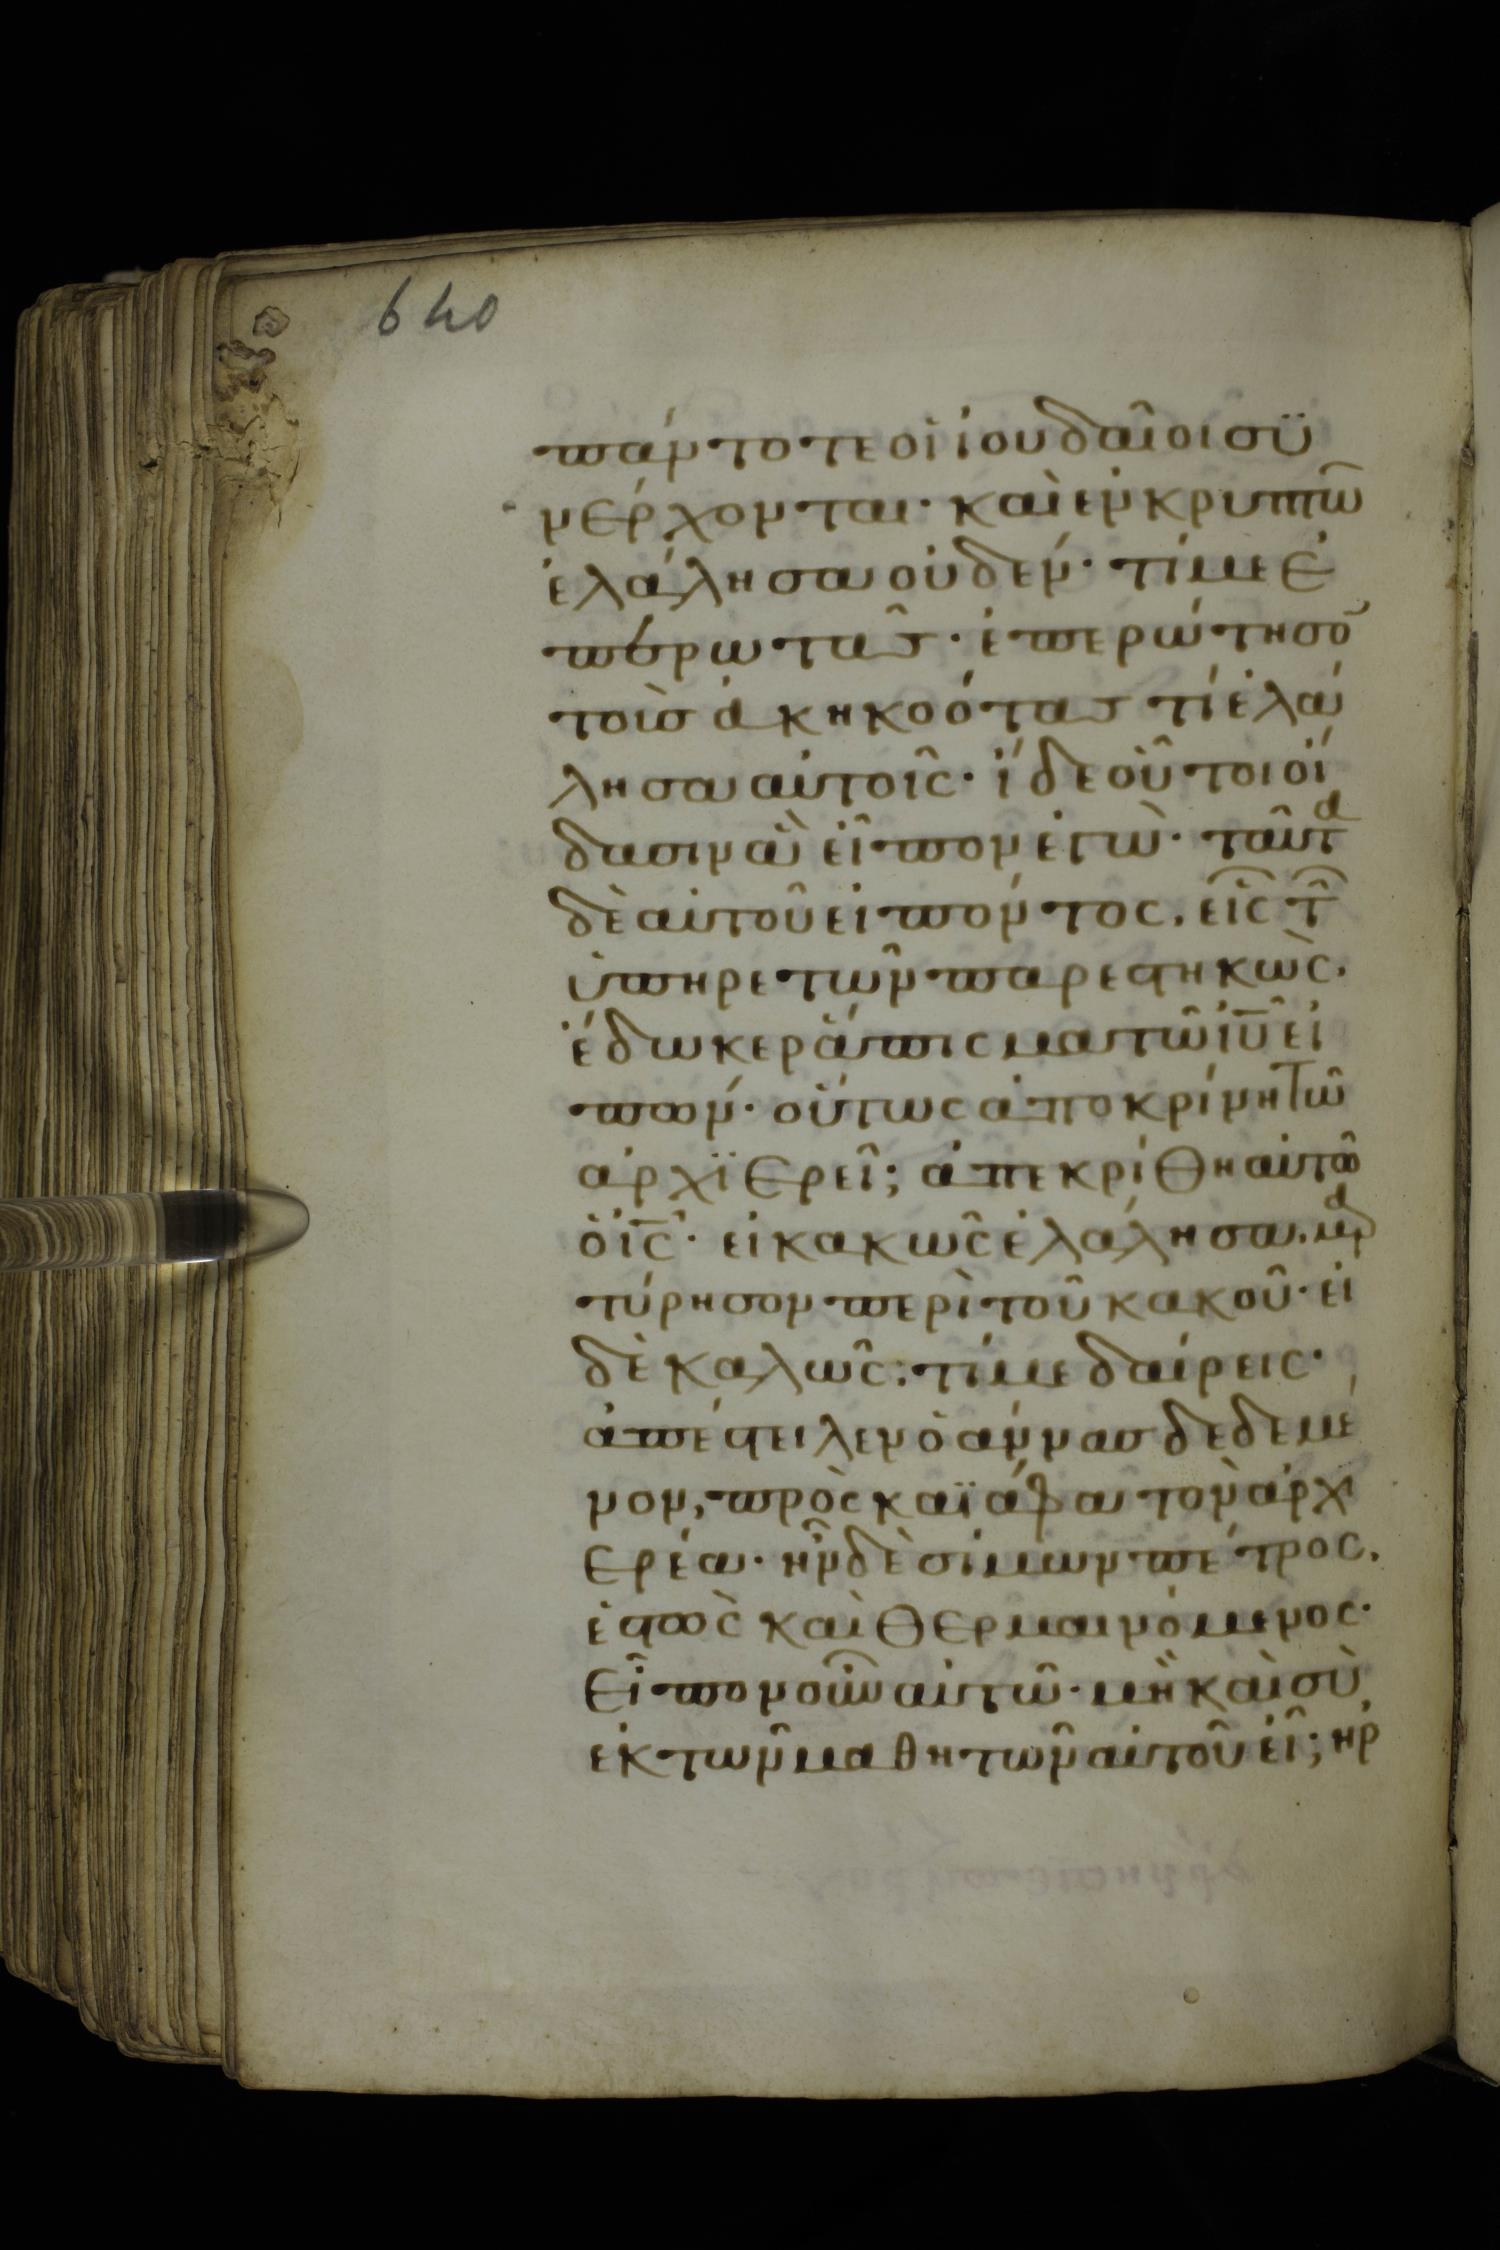 640
πάντοτε οἱ ἰουδαῖοι συ
νέρχονται· καὶ ἐν κρυπτῶ
ἐλάλησα οὐδέν· τί με ἐ
περωτᾶς· ἐπερώτησον
τοὺσ ἀκηκοότας τί ἐλά
λησα αὐτοῖς· ἴδε οὗτοι οἴ
δασιν ἃ εἶπον ἐγὼ· ταῦτα
δὲ αὐτοῦ εἰπόντος, εἷς τῶν
ὑπηρετῶν παρεστηκὼς·
ἔδωκε ράπισμα τῶ ἰῦ εἰ
πών· οὕτως ἀποκρίνη τῶ
ἀρχϊερεῖ; ἀπεκρίθη αὐτῶ
ὁ ἰς̄· εἰ κακῶς ἐλάλησα, μαρ
τύρησον περὶ τοῦ κακοῦ· εἰ
δὲ καλῶς; τί με δαίρεις·
ἀπέστειλεν ὁ ἄννασ δεδεμέ
νον, πρὸς καϊάφαν τὸν ἀρχι
ερέα· ἦν δὲ σίμων πέτρος,
ἑστὼς καὶ θερμαινόμενος·
εἶπον οὖν αὐτῶ· μὴ καὶ σὺ
ἐκ τῶν μαθητῶν αὐτοῦ εἶ; ἠρ